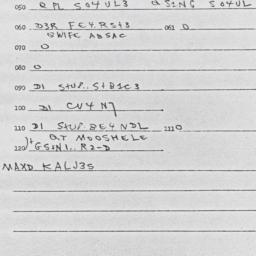 050 R PL SO4UL3 QSING SO4UL
060 D3R FE4RST3 061 0
SWIFE ABSAC
070 0
080 0
090 DI STUP. STB1C3
100 DI CU4N7
110 DI STUP BE4NDL 1110
QT MOOSHELE
120 GSIN1. R2-D
MAXD KALJ3S